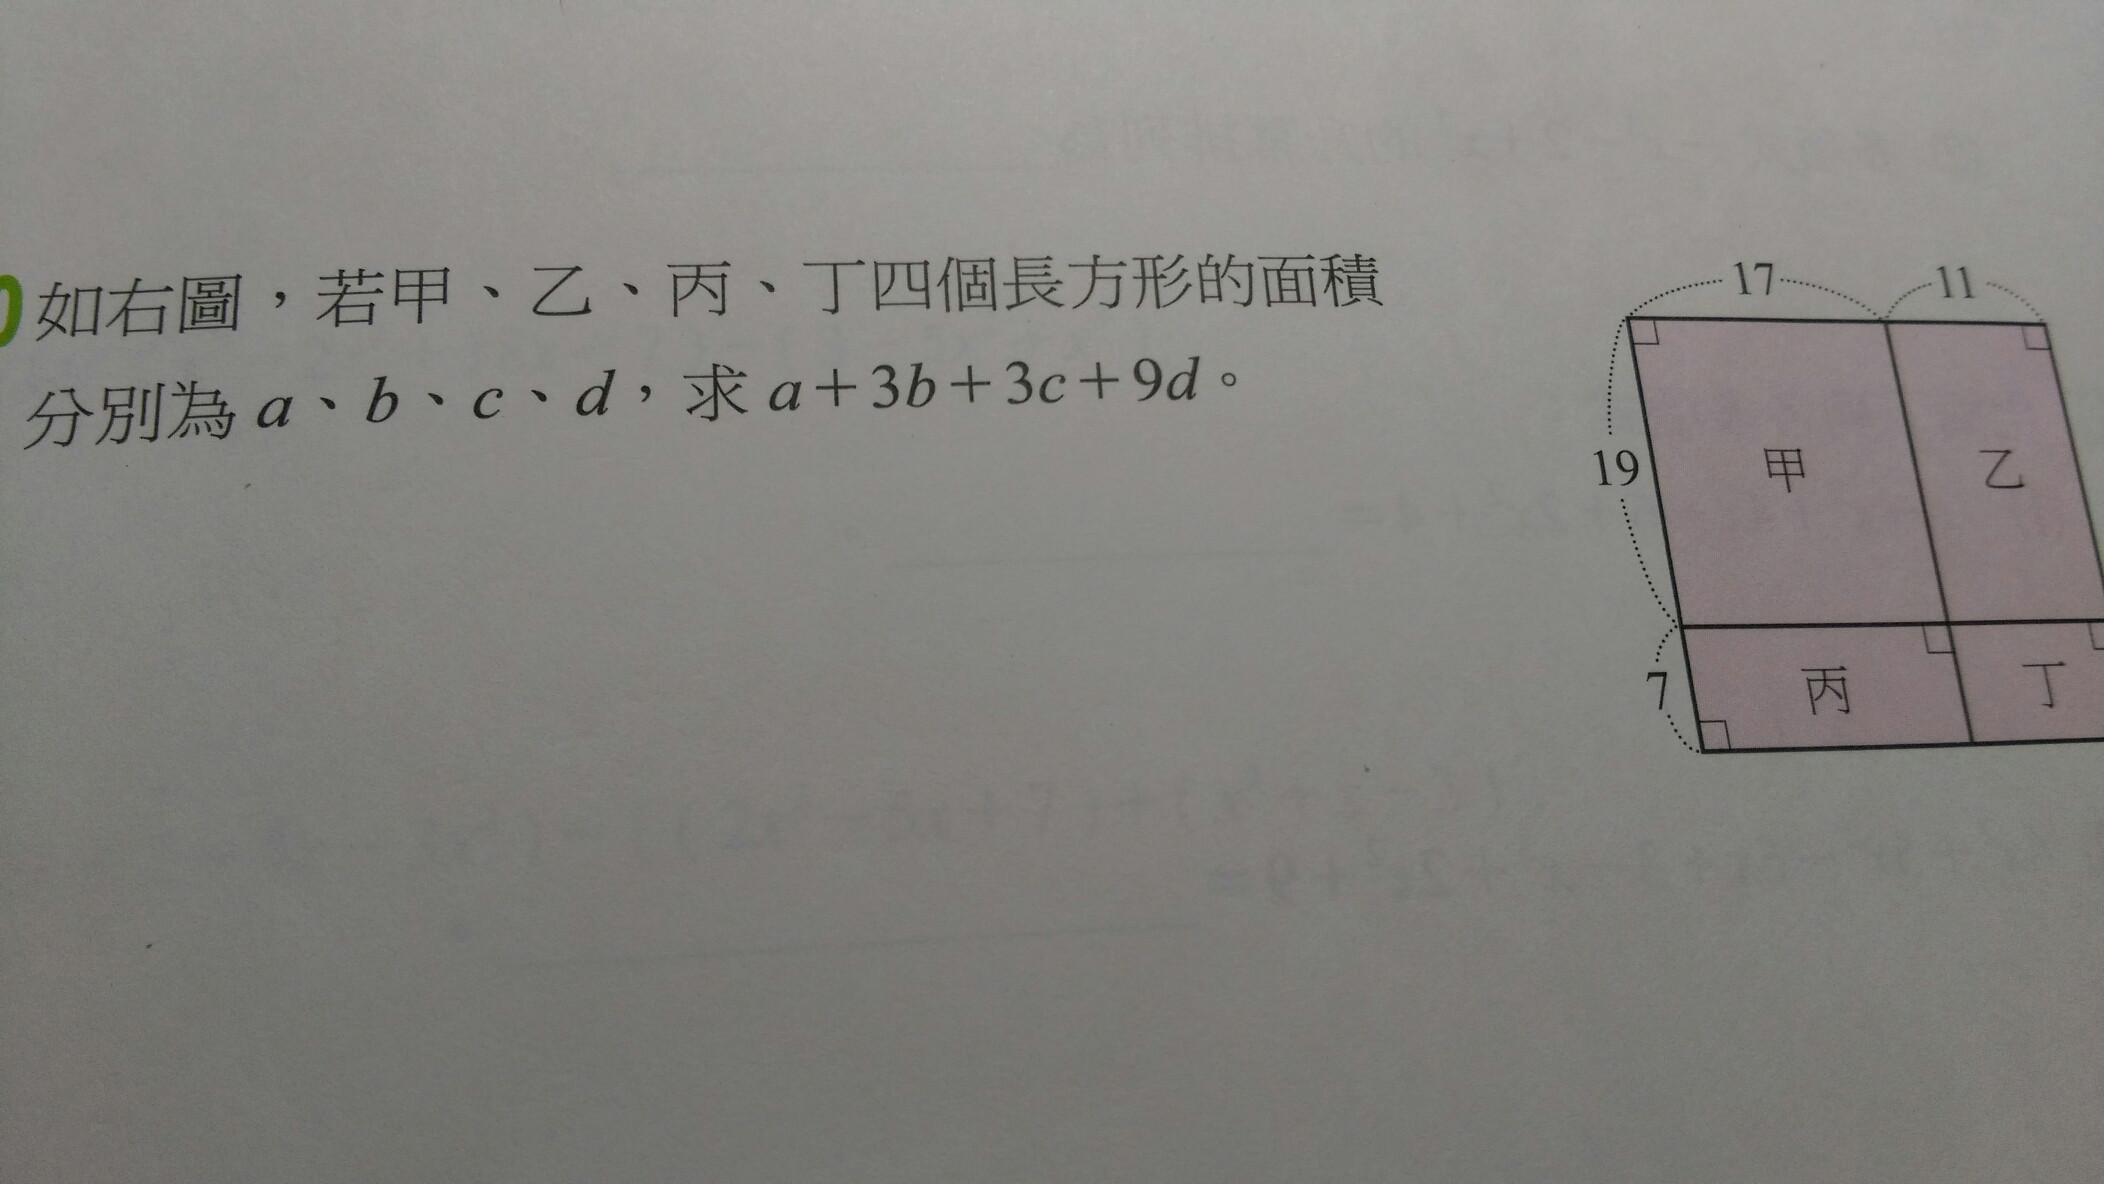 如右圖，若甲、乙、丙、丁四個長方形的面積
分別為 a、b、c、d，求 a+3b+3c+9d。
17
11
19
甲
乙
7
丙
丁